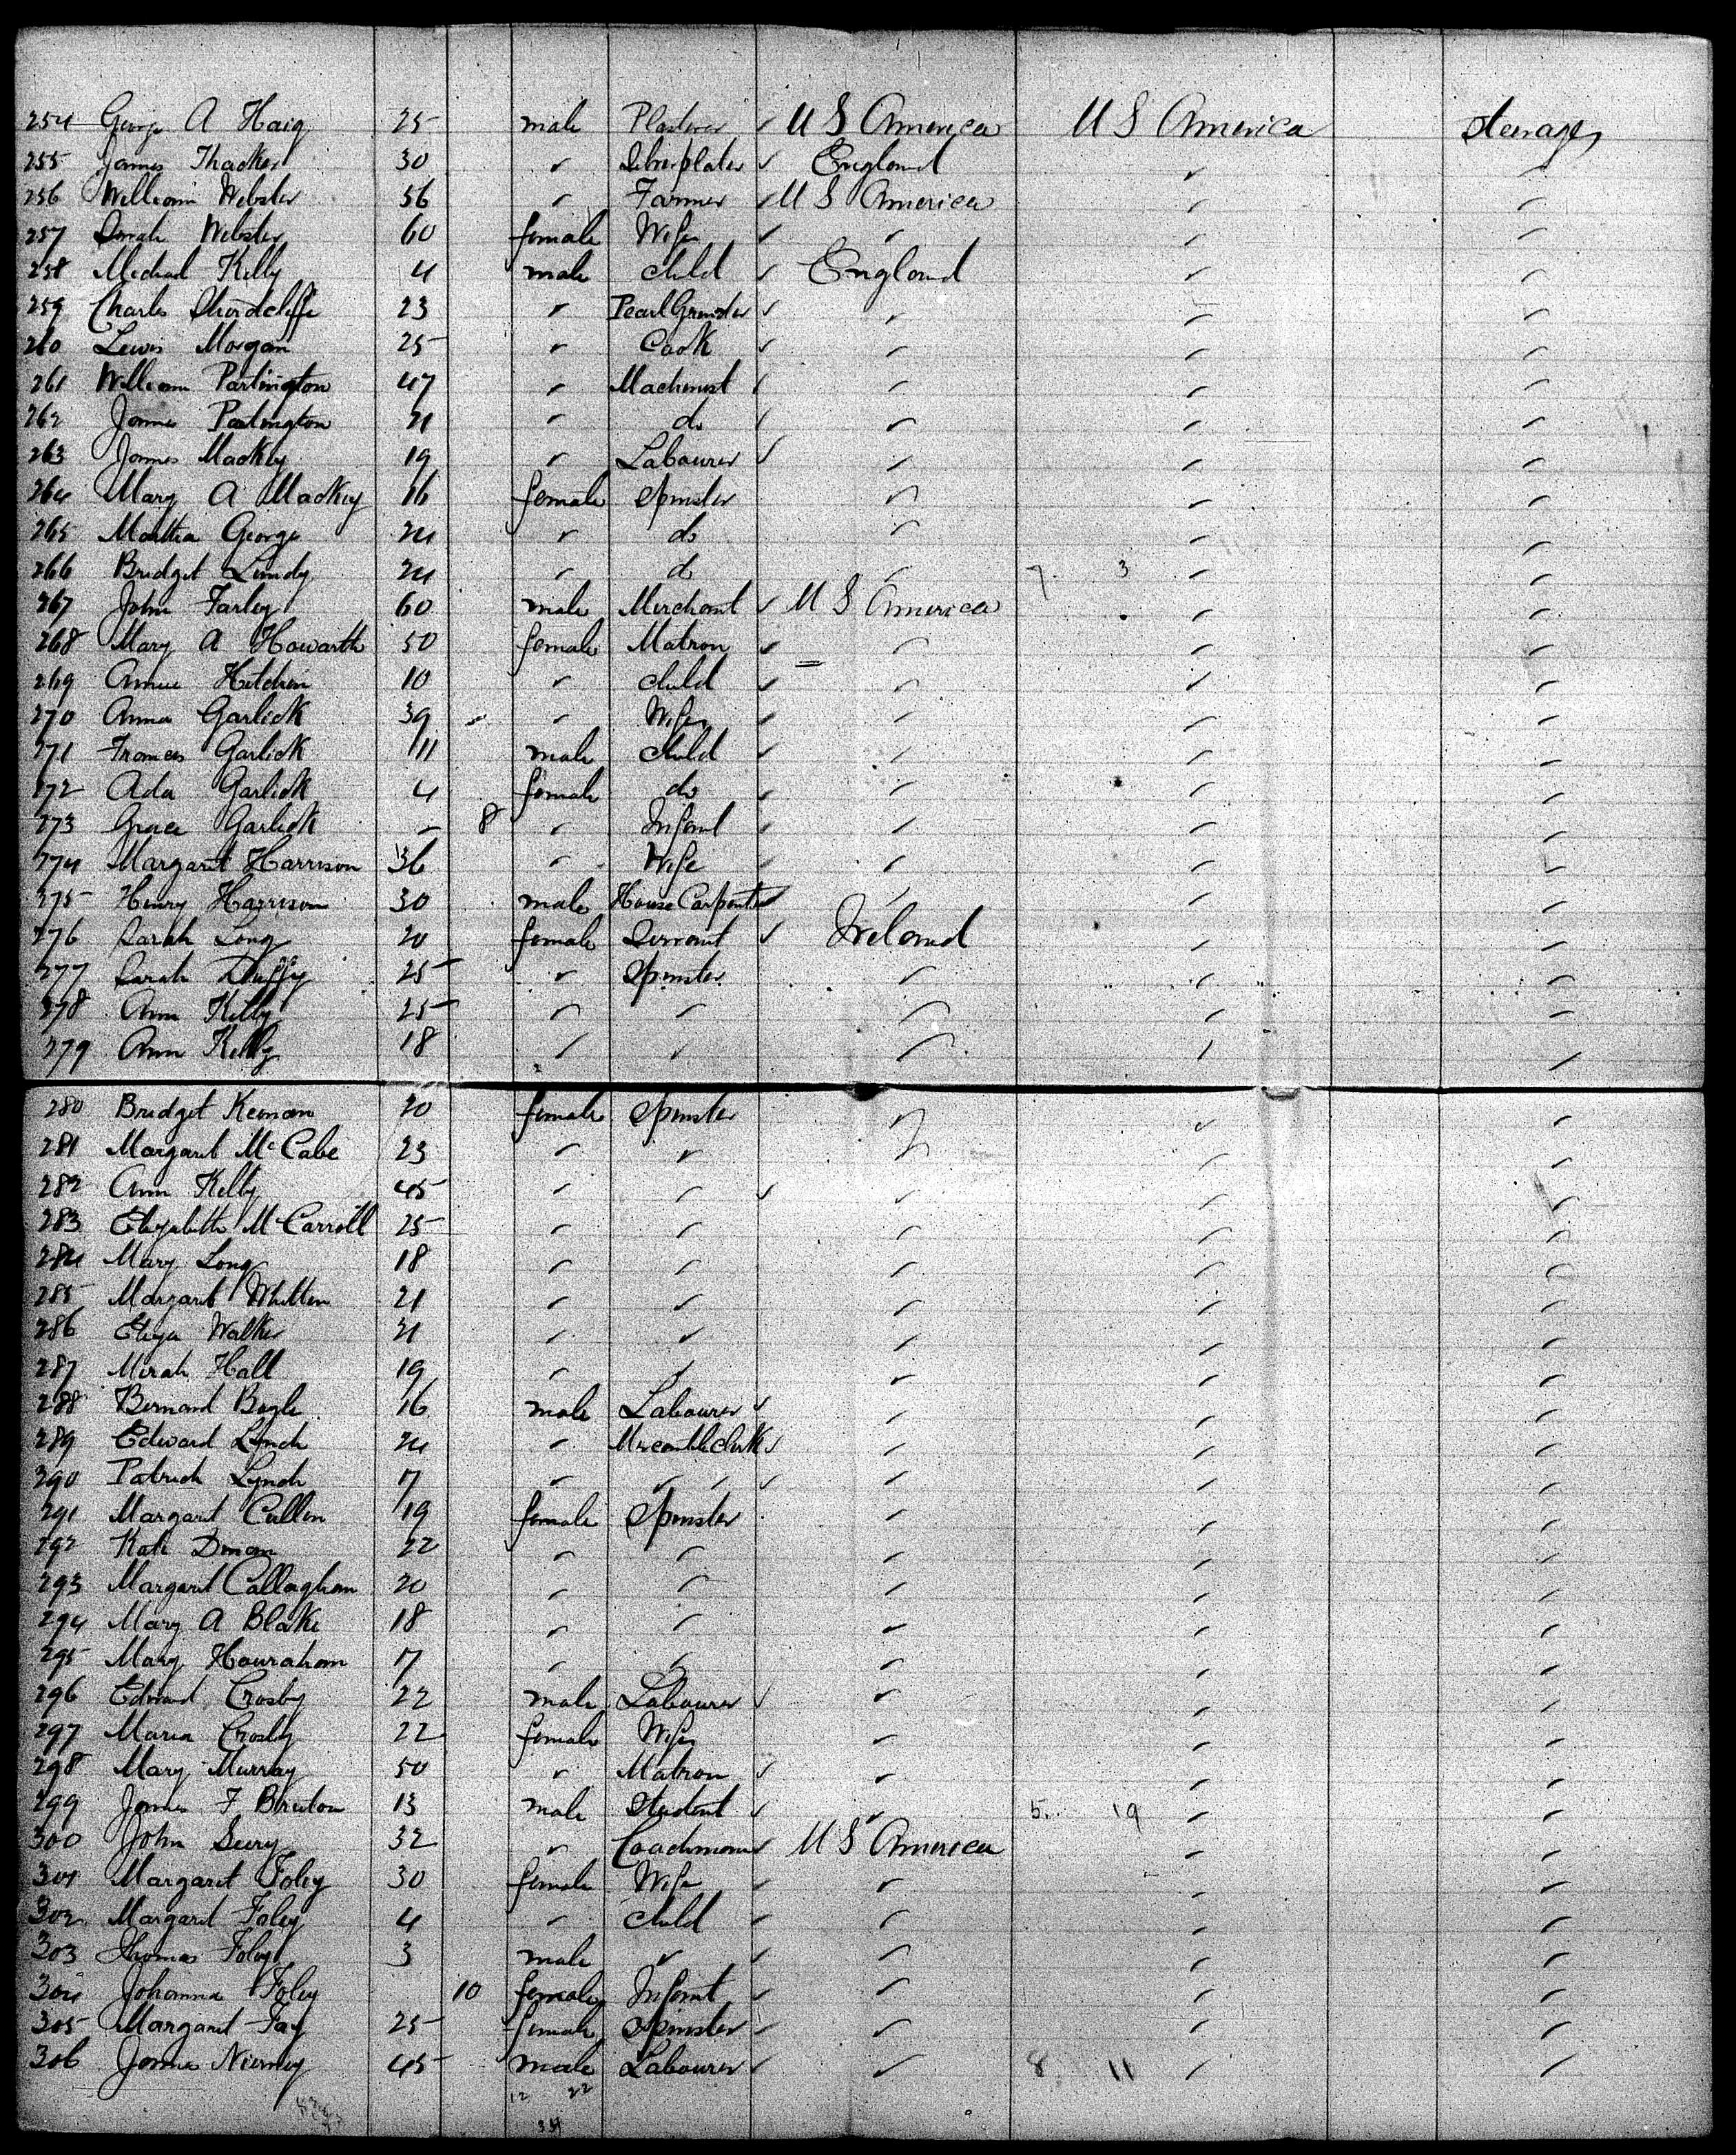 254 George A Haig 25 male Plasterer ✓ U S America U S America Steerage
255 James Thacker 30 " Silverplater ✓ England " "
256 William Webster 56 " Farmer ✓ U S America " "
257 Sarah Webster 60 female Wife ✓ " " "
258 Michael Kelly 4 male child ✓ England " "
259 Charles 23 " Pearl Grinder ✓ " " "
260 Lewis Morgan 25 " Cook ✓ " " "
261 William Partington 47 " Machinist ✓ " " "
262 James Partington 21 " do ✓ " " "
263 James Mackey 19 " Labourer ✓ " " "
264 Mary A Mackey 16 female Spinster " " "
265 Martha George 24 " do " " "
266 Bridget Lundy 24 " do " 7 3 " "
267 John Farley 60 male Merchant ✓ U S America " "
268 Mary A Howarth 50 female Matron ✓ " " "
269 Annie Hitchin 10 " child ✓ " " "
270 Anna Garlick 39 " " Wife ✓ " " "
271 Frances Garlick 11 male child ✓ " " "
272 Ada Garlick 4 female do ✓ " " "
273 Grace Garlick - 8 " Infant ✓ " " "
274 Margaret Harrison 36 " Wife ✓ " " "
275 Henry Harrison 30 male House Carpenter ✓ " " "
276 Sarah Long 20 female Servant ✓ Ireland " "
277 Sarah Duffy 25 " Spinster " " "
278 Ann Kelly 25 " " " " "
279 Ann Kelly 18 " " " " "
280 Bridget Kernan 20 female Spinster " " "
281 Margaret McCabe 23 " " " " "
282 Ann Kelly 45 " " ✓ " " "
283 Elizabeth McCarroll 25 " " " " "
284 Mary Long 18 " " " " "
285 Margaret Whitten 21 " " " " "
286 Eliza Walker 21 " " " " "
287 Mirah Hall 19 " " " " "
288 Bernard Boyle 16 male Labourer ✓ " " "
289 Edward Lynch 24 " Mercantile clerk ✓ " " "
290 Patrick Lynch 17 " " " ✓ " " "
291 Margaret Cullen 19 female Spinster " " "
292 Kate 22 " " " " "
293 Margaret Callaghan 20 " " " " "
294 Mary A Blake 18 " " " " "
295 Mary Hourahan 17 " " " " "
296 Edward Crosby 22 male Labourer ✓ " " "
297 Maria Crosby 22 female Wife " " "
298 Mary Murray 50 " Matron ✓ " " "
299 James F Bruton 13 male Student ✓ " 5 19 " "
300 John Seery 32 " Coachman ✓ U S America " "
301 Margaret Foley 30 female Wife ✓ " " "
302 Margaret Foley 4 " child ✓ " " "
303 Thomas Foley 3 male " ✓ " " "
304 Johanna Foley 10 female Infant ✓ " " "
305 Margaret Fay 25 female Spinster ✓ " " "
306 James Nierney 45 male Labourer ✓ " 8 11 " "
12 22
34